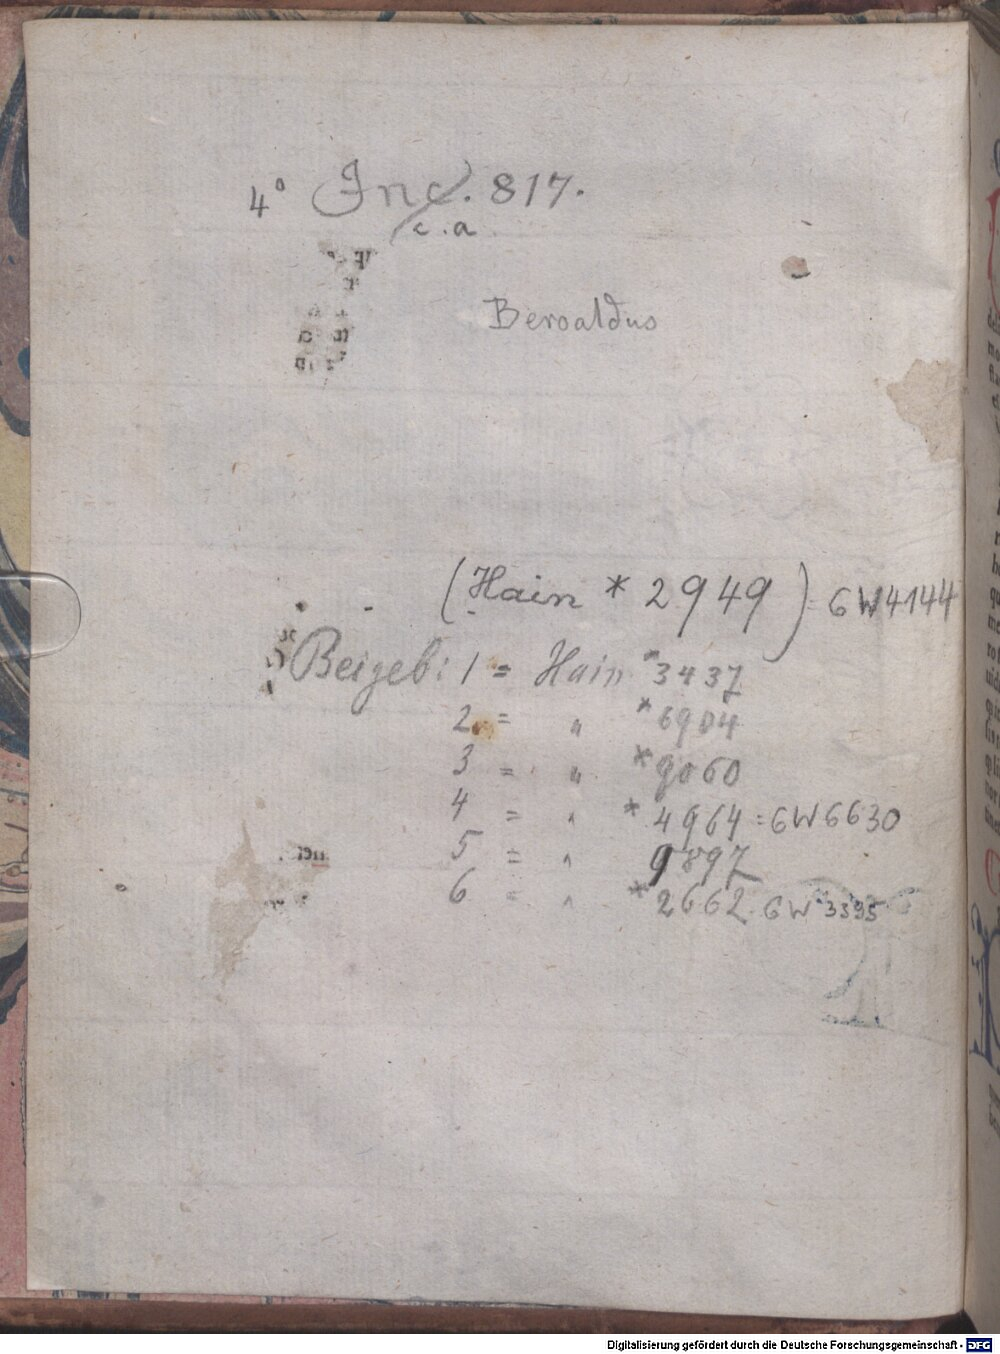 4° Inc. 817.
c. a.
Beroaldus
(Hain * 2949) = GW4144
Beigeb: 1 = Hain *3437
2 = " *6904
3 = " *9060
4 = " *4964 = GW6630
5 = " 9897
6 = " *2662. GW 3395
Digitalisierung gefördert durch die Deutsche Forschungsgemeinschaft - DFG